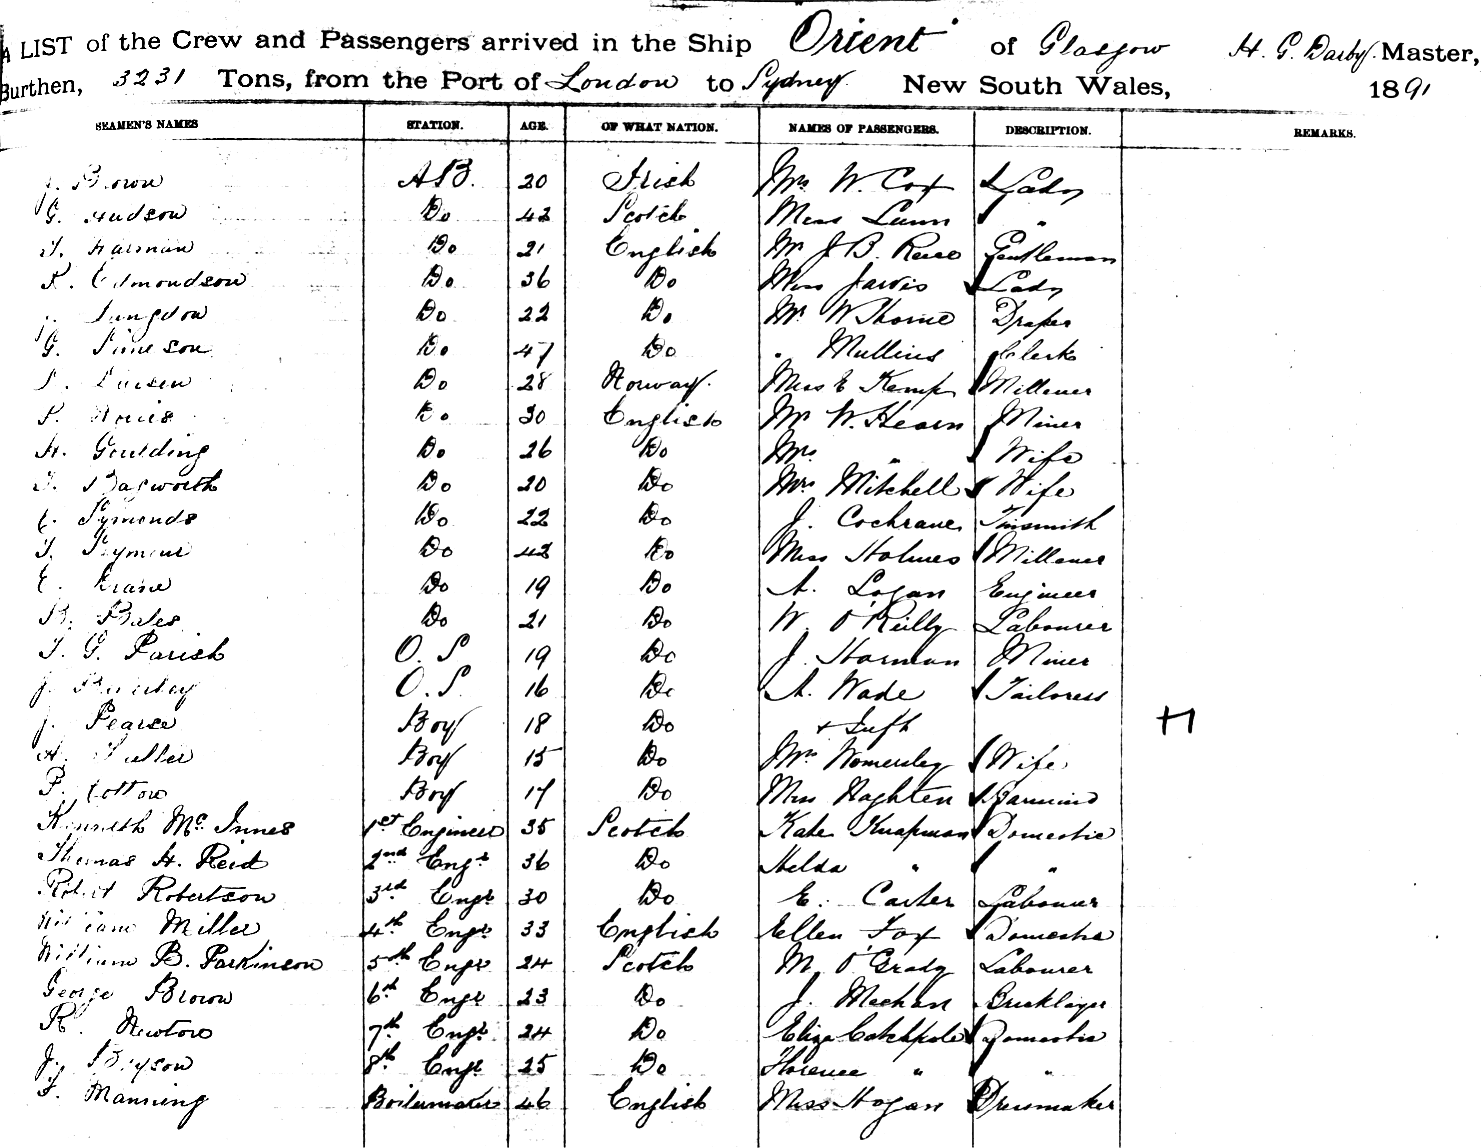 A LIST of the Crew and Passengers arrived in the Ship "Orient" of Glasgow H. G. Darby. Master,
Burthen, 3231 Tons, from the Port of London to Sydney New South Wales, 1891
SEAMEN'S NAMES STATION. AGE. OF WHAT NATION. NAMES OF PASSENGERS. DESCRIPTION. REMARKS.
J. Brown A.B. 20 Irish Mrs W. Cox Lady
G. Hudson Do 42 Scotch Miss Lunn "
T. Harman Do 21 English Mr J. B. Reese Gentleman
R. Edmondson Do 36 Do Miss Jarvis Lady
Langdon Do 22 Do Mr W Thorne Draper
G. Do 47 Do " Mullins Clerk
Larsen Do 28 Norway. Miss E Kemp Millener
Do 30 English Mr W. Hearn Miner
H. Goulding Do 26 Do Mrs " Wife
T. Do 20 Do Mrs Mitchell Wife
Symonds Do 22 Do J. Cochrane Tinsmith
T. Seymour Do 42 Do Miss Holmes Millener
E. Do 19 Do A. Logan Engineer
B. Bates Do 21 Do W. O'Reilly Labourer
T. G. Parish O. S 19 Do J. Harman Miner
J. O. S. 16 Do A. Wade Tailoress
J. Pearse Boy 18 Do + Inft H
H. Fuller Boy 15 Do Mrs Womersley Wife
F. Cotton Boy 17 Do Miss Naghten
Kenneth McInnes 1st Engineer 35 Scotch Kate Knapman Domestic
Thomas H. Reid 2nd Engr 36 Do Hilda " "
Robert Robertson 3rd Engr 30 Do E. Carter Labourer
William Miller 4th Engr 33 English Ellen Fox Domestic
William B. Parkinson 5th Engr 24 Scotch M. O'Grady Labourer
George Brown 6th Engr 23 Do J. Meehan Bricklayer
R. Newton 7th Engr 24 Do Eliza Catchpole Domestic
J. Bryson 8th Engr 25 Do Florence " "
F. Manning Boilermaker 46 English Miss Hogan Dressmaker